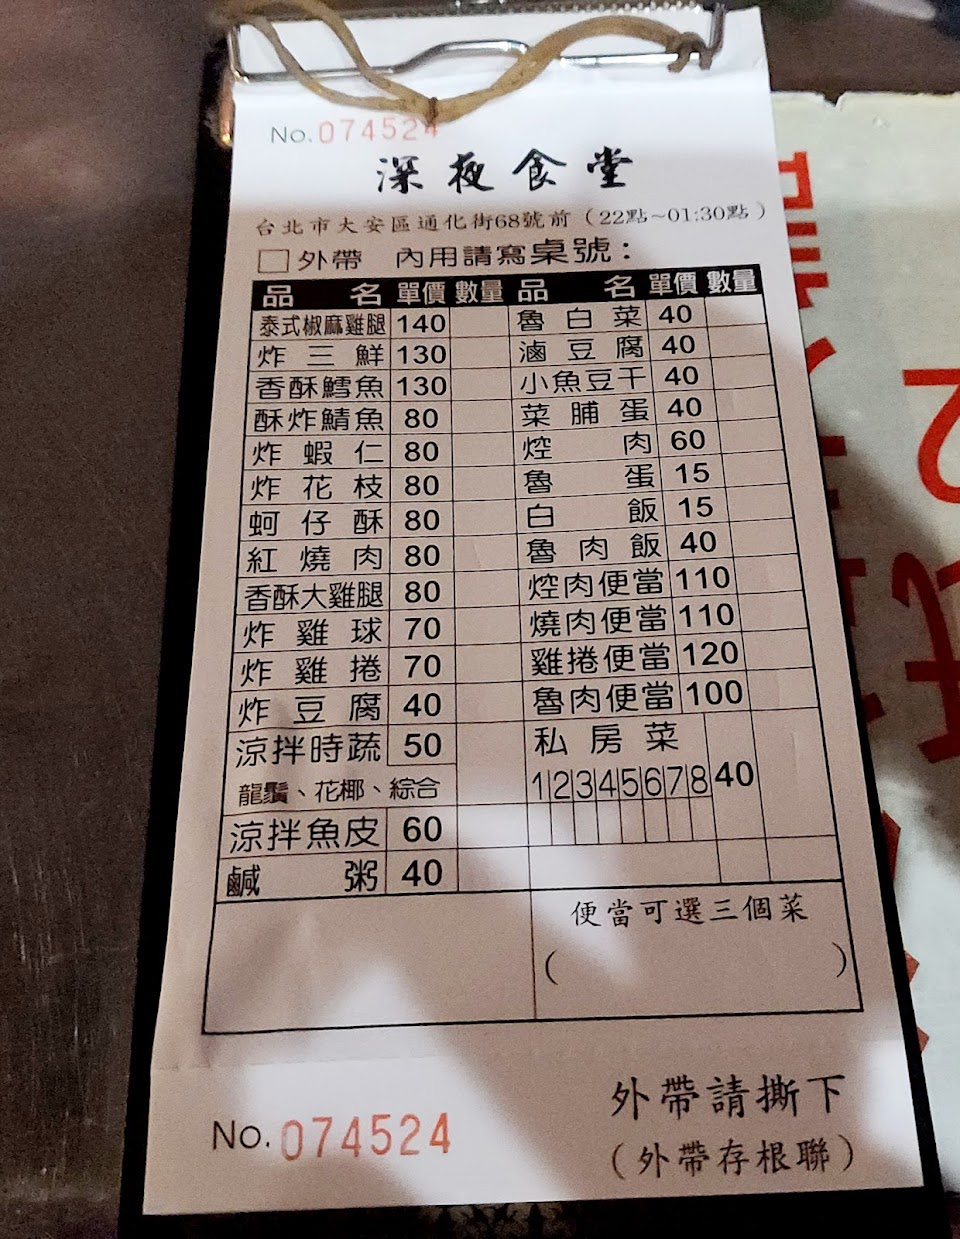 No.074524
深夜食堂
台北市大安區通化街68號前（22點~01:30點）
□外帶 內用請寫桌號：
品名 單價 數量 品名 單價 數量
泰式椒麻雞腿 140 魯白菜 40
炸三鮮 130 滷豆腐 40
香酥鱈魚 130 小魚豆干 40
酥炸鯖魚 80 菜脯蛋 40
炸蝦仁 80 焢肉 60
炸花枝 80 魯蛋 15
蚵仔酥 80 白飯 15
紅燒肉 80 魯肉飯 40
香酥大雞腿 80 焢肉便當 110
炸雞球 70 燒肉便當 110
炸雞捲 70 雞捲便當 120
炸豆腐 40 魯肉便當 100
涼拌時蔬 50 私房菜 40
龍鬚、花椰、綜合 1 2 3 4 5 6 7 8
涼拌魚皮 60
鹹粥 40
便當可選三個菜
（ ）
外帶請撕下
No.074524
（外帶存根聯）